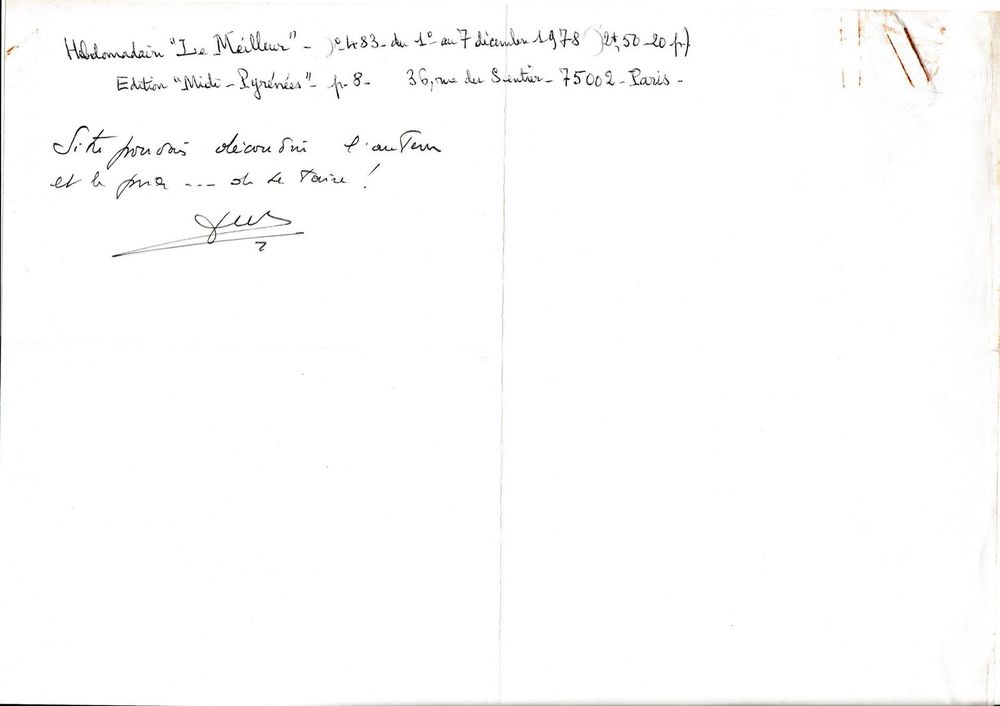 Hebdomadaire "Le Meilleur" - n° 483 - du 1° au 7 décembre 1978 (2f,50 - 20 p.)
Edition "Midi - Pyrénées" - p. 8 - 36, rue du Sentier - 75002 - Paris -
Si tu pouvais découvrir l'auteur
et le prier --- de se taire !